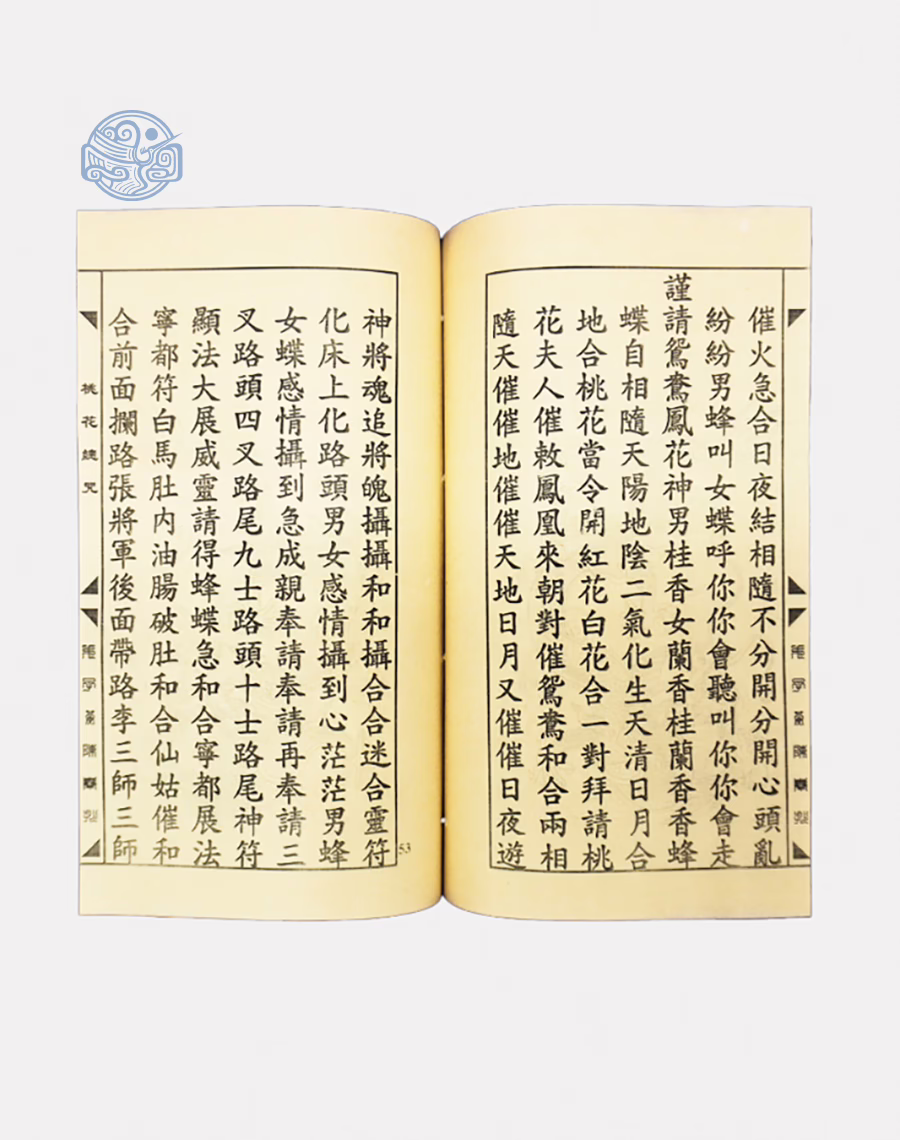 催火急合日夜結相隨不分開分開心頭亂
紛紛男蜂叫女蝶呼你你會聽叫你你會走
謹請鴛鴦鳳花神男桂香女蘭香桂蘭香香蜂
蝶自相隨天陽地陰二氣化生天清日月合
地合桃花當令開紅花白花合一對拜請桃
花夫人催敕鳳凰來朝對催鴛鴦和合兩相
隨天催催地催催天地日月又催催日夜遊
神將魂追將魄攝攝和和攝合合迷合靈符
化床上化路頭男女感情攝到心茫茫男蜂
女蝶感情攝到急成親奉請奉請再奉請三
叉路頭四叉路尾九士路頭十士路尾神符
顯法大展威靈請得蜂蝶急和合寧都展法
寧都符白馬肚内油腸破肚和合仙姑催和
合前面攔路張將軍後面帶路李三師三師
桃花 咒
53